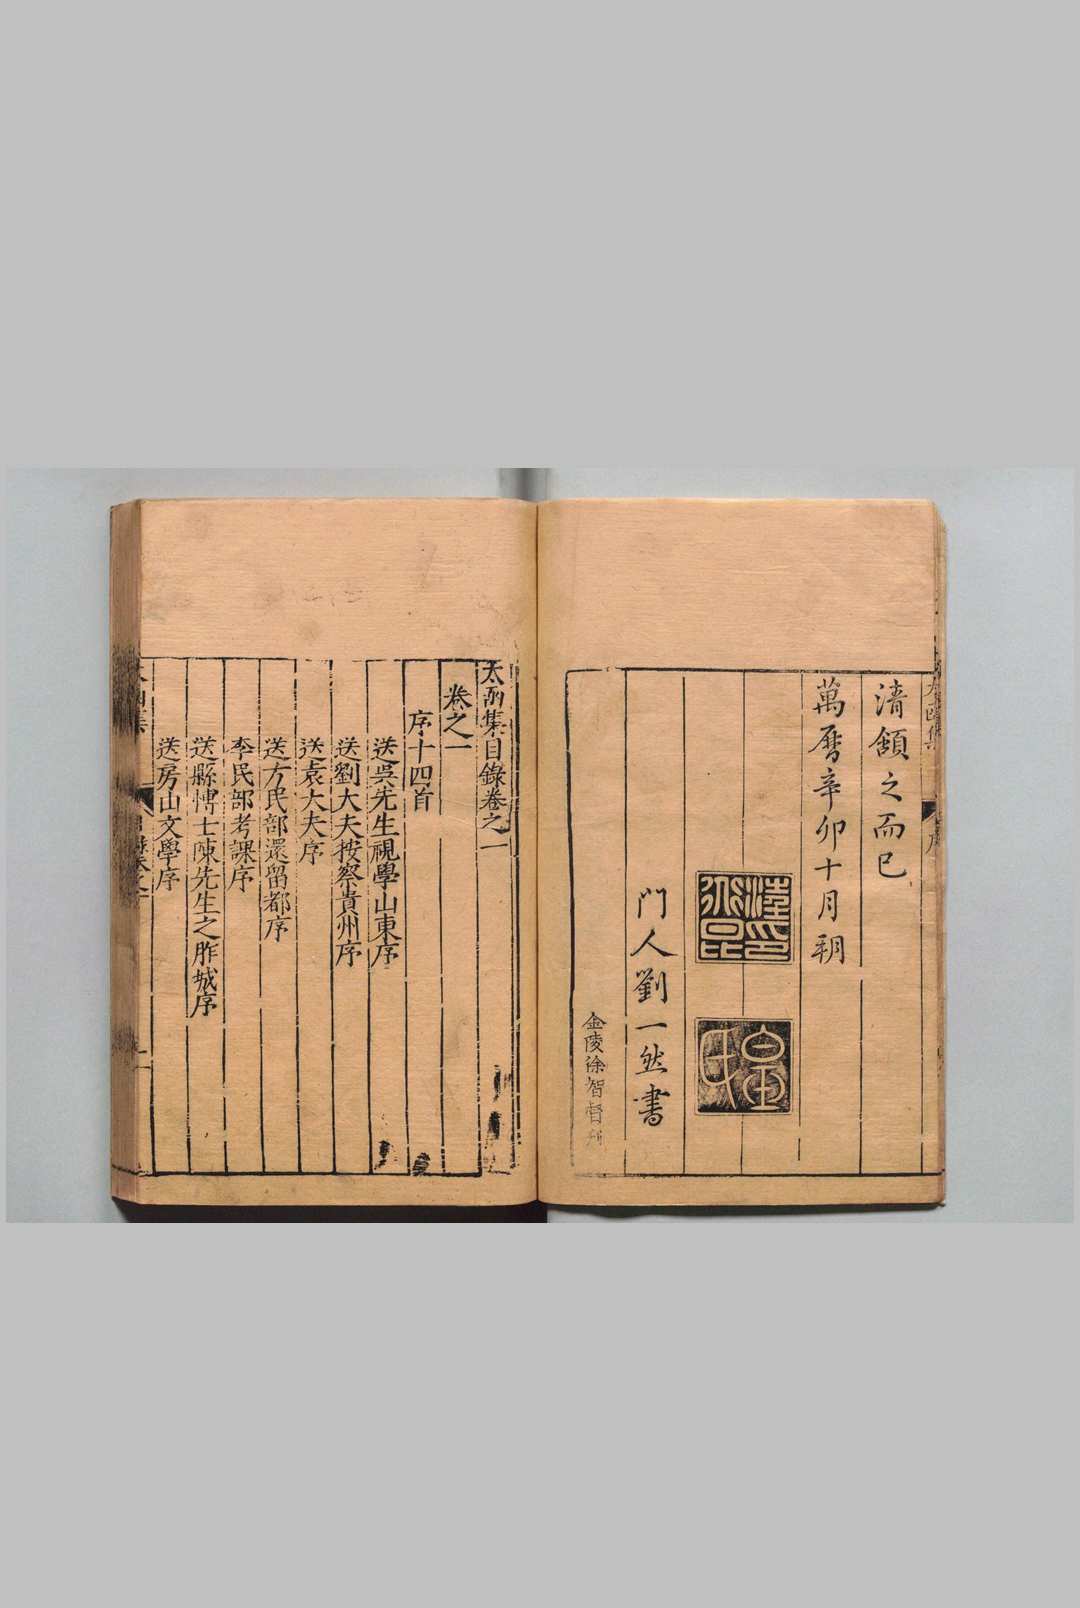 清顀之而已
萬曆辛卯十月朔
門人劉一然書
金陵徐智督刊
太函集目錄卷之一
卷之一
序十四首
送吳先生視學山東序
送劉大夫按察貴州序
送袁大夫序
送方民部還留都序
李民部考課序
送縣博士陳先生之胙城序
送房山文學序